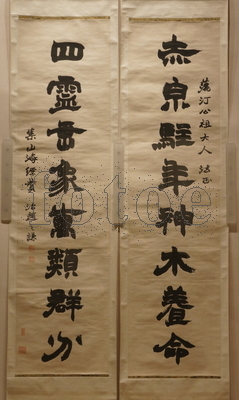 赤泉駐年神木養命
大人 法正
四靈垂象萬類群分
集山海經贊 趙之謙
fotoe